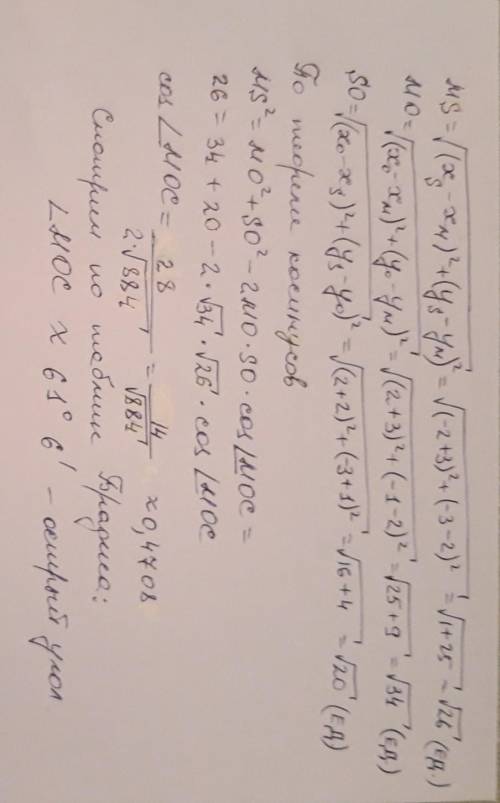 MS = √((x_S − x_M)² + (y_S − y_M)²) = √((−2+3)² + (−3−2)²) = √(1+25) = √26 (ед.)
MO = √((x_0 − x_M)² + (y_0 − y_M)²) = √((2+3)² + (−1−2)²) = √(25+9) = √34 (ед.)
SO = √((x_0 − x_S)² + (y_S − y_0)²) = √((2+2)² + (−3+1)²) = √(16+4) = √20 (ед)
По теореме косинусов
MS² = MO² + SO² − 2MO·SO·cos∠MOC =
26 = 34 + 20 − 2·√34·√26·cos∠MOC
cos∠MOC = 28 / (2·√884) = 14 / √884 ≈ 0,4708
Смотрим по таблице Брадиса:
∠MOC ≈ 61° 6' – острый угол